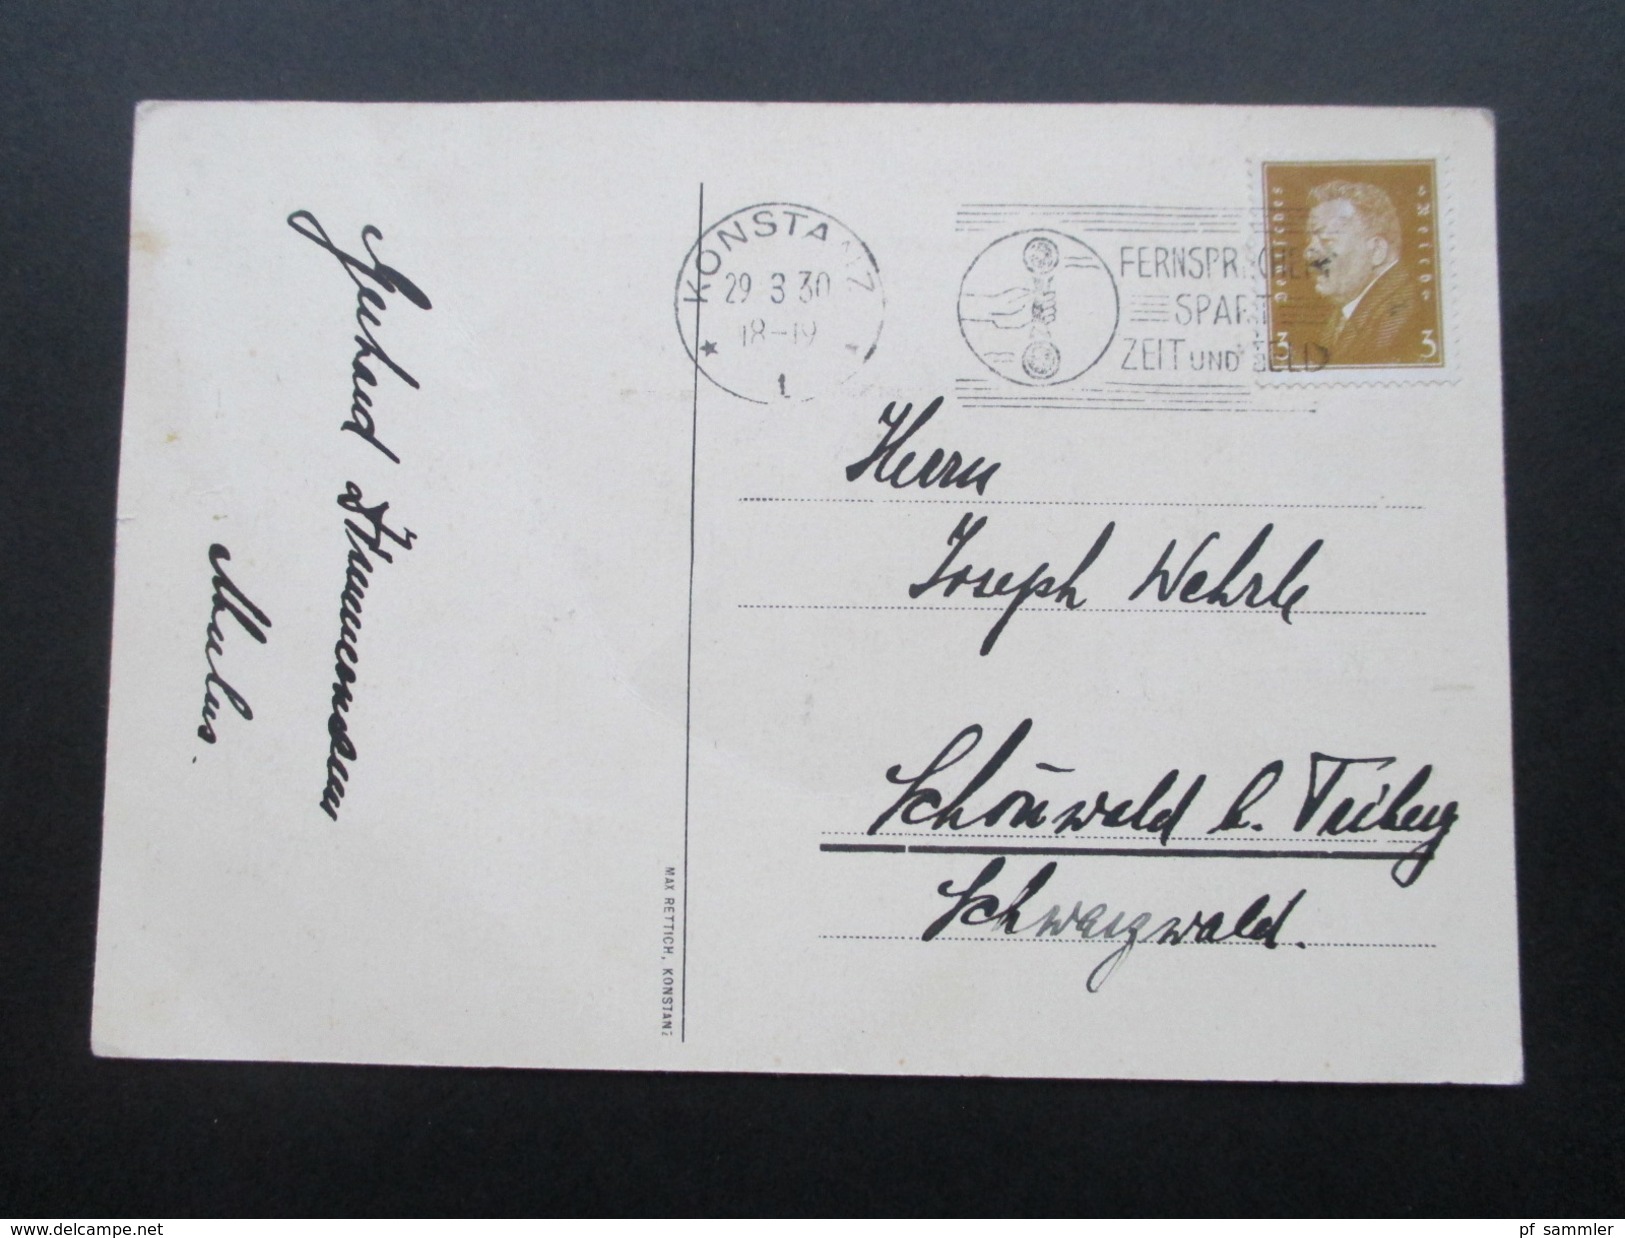 KONSTANZ
29 3 30
18-19
1
FERNSPRECHEN
SPART
ZEIT UND GELD
Deutsches Reich
3 3
Herrn
Joseph Wehrle
Schönwald b. Triberg
Schwarzwald.
MAX RETTICH, KONSTANZ
www.delcampe.net
pf_sammler